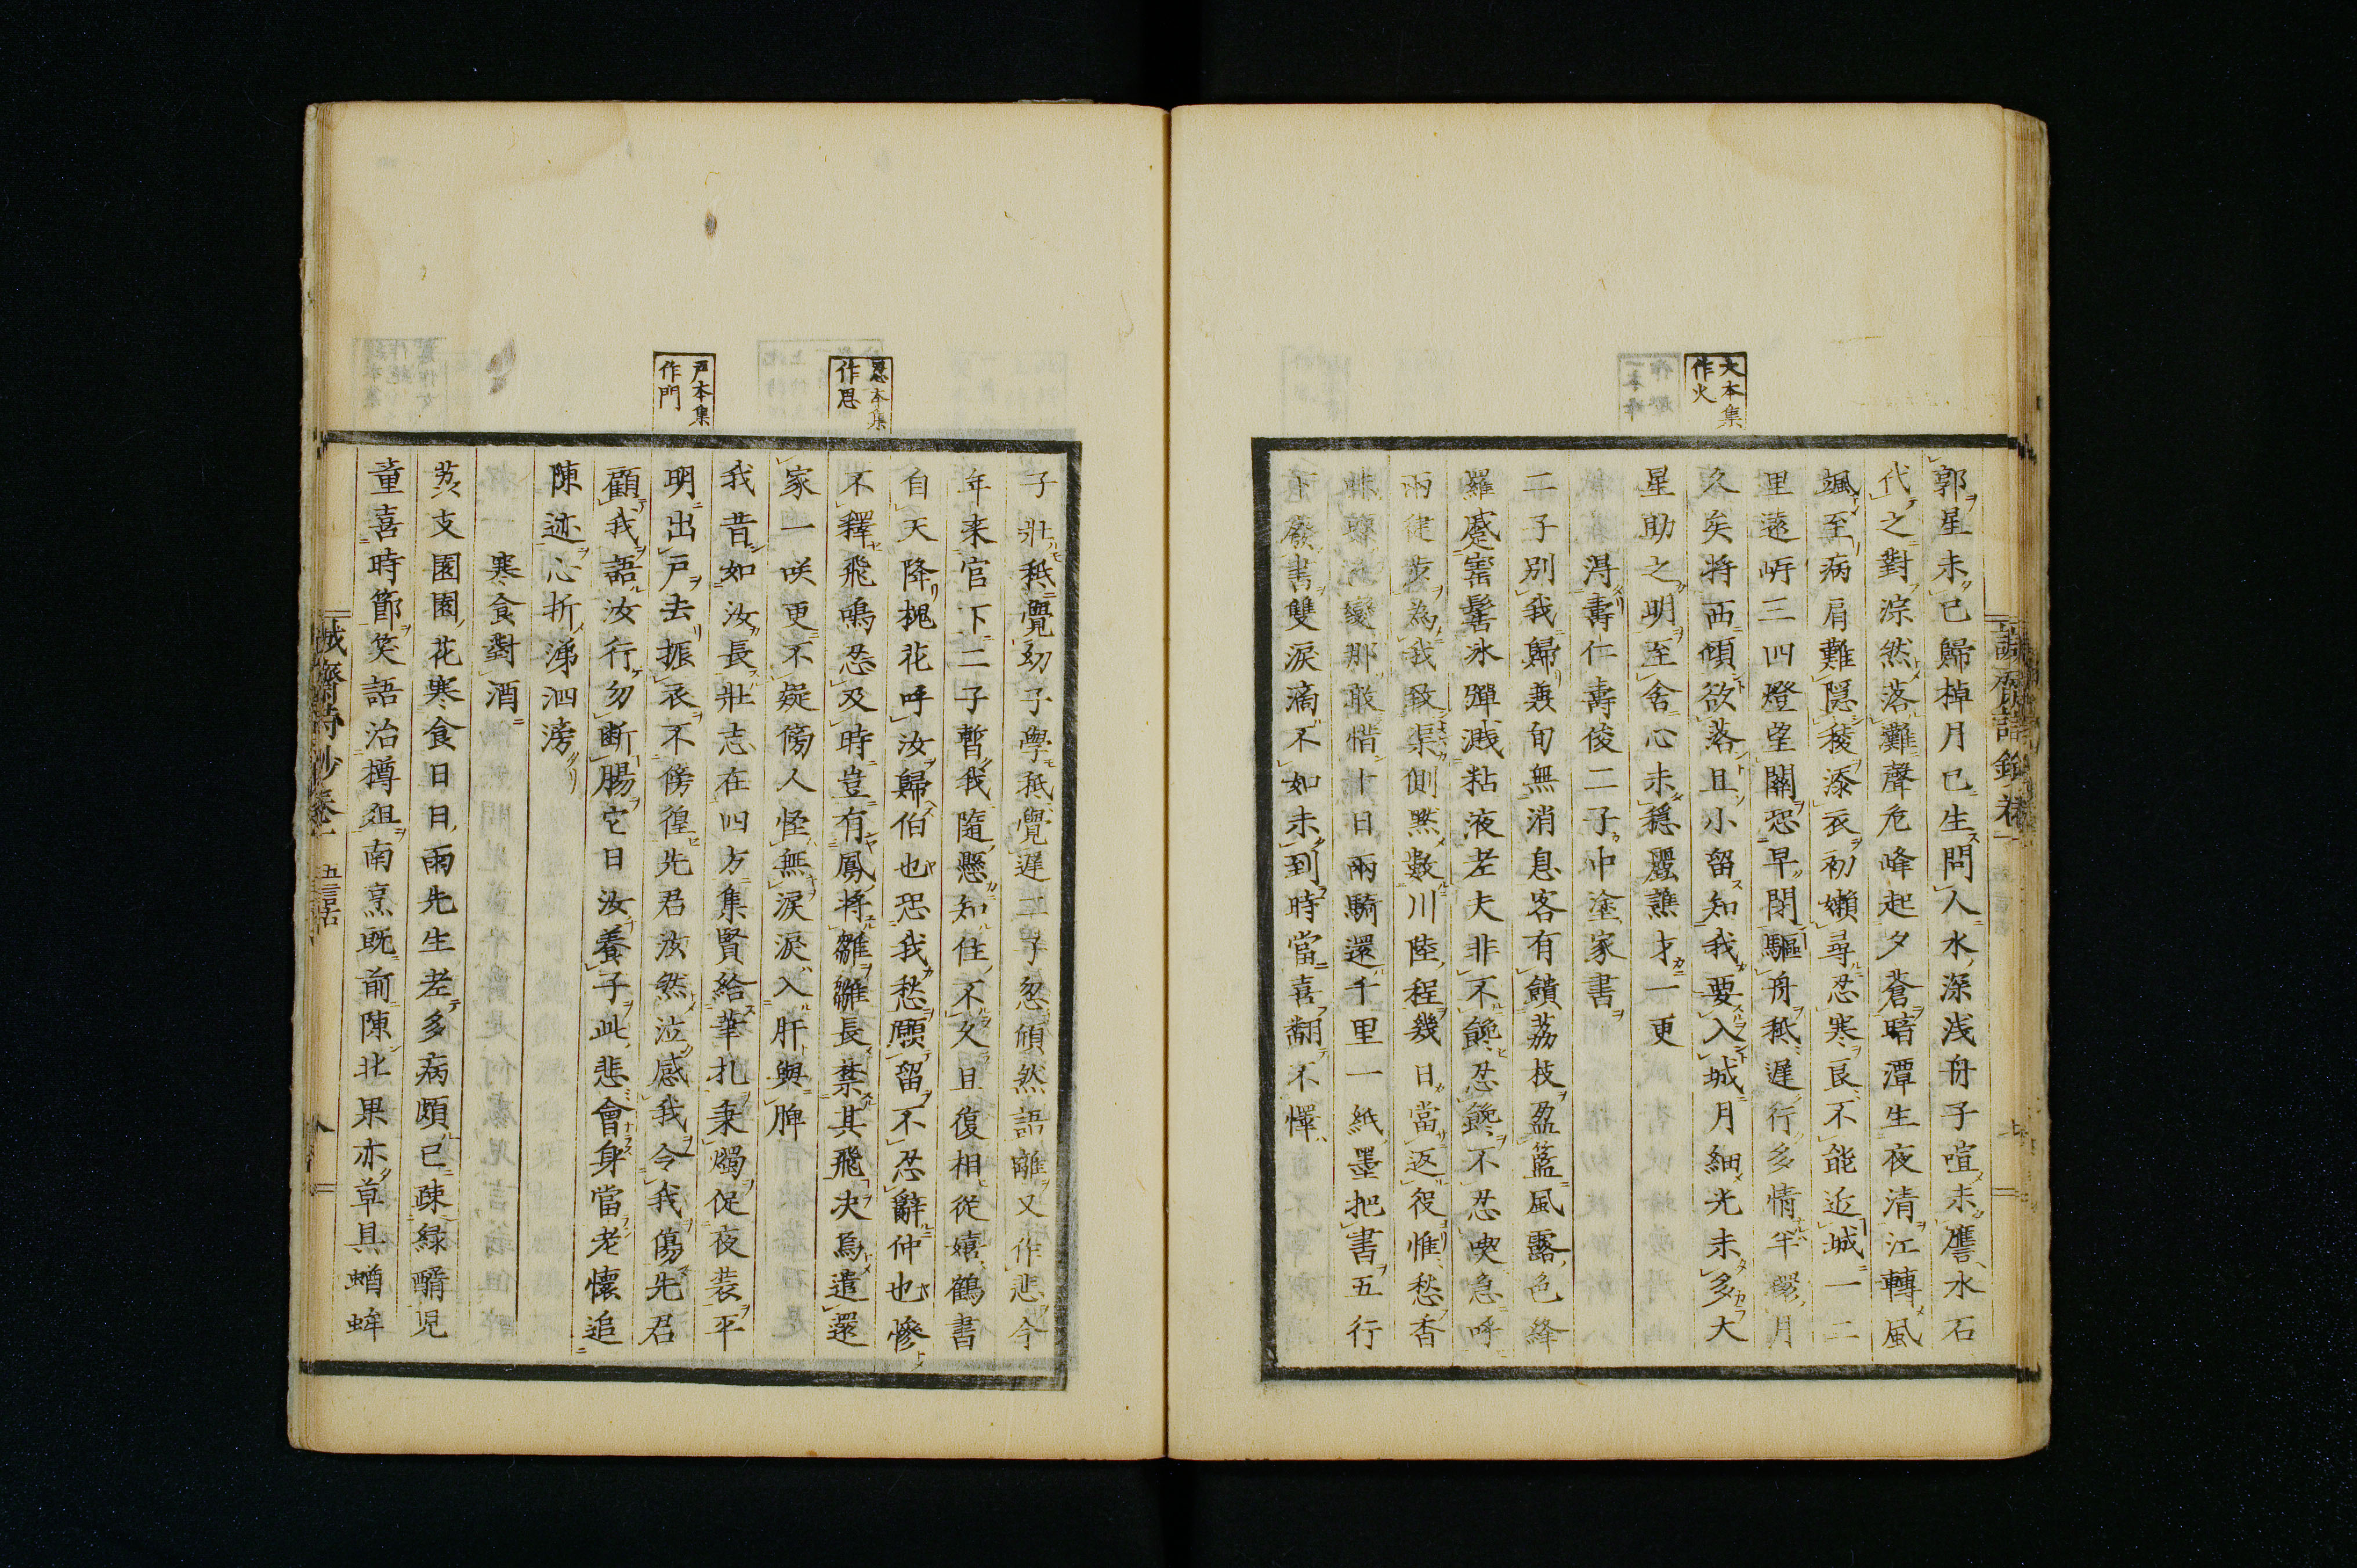 大本集
作火
郭星未已歸棹月已生問人水深浅舟子喧未譍水石
代之對淙然落灘聲危峰起夕蒼暗潭生夜清江轉風
颯至病肩難隠稜添衣初嬾尋忍寒良不能近城一二
里遠嶼三四燈望關恐早閉驅舟秪遲行多情半環月
久矣將西傾欲落且小留知我要入城月細光未多大
星助之明至舎心未穏麗譙才一更
淂壽仁壽俊二子中塗家書
二子別我歸兼旬無消息客有饋荔枝盈籃風露色絳
羅蹙宻髻氷彈濺粘液老夫非不饞忍饞不忍喫急呼
兩徒步為我致渠側黙數川陸程幾日當返役惟愁香
味變那敢惜十日兩騎還千里一紙墨把書五行
下廢書雙涙滴不如未到時當喜翻不懌
誠齋詩鈔卷一 七
恩本集
作思
戸本集
作門
子壯秪覺幼子學秪覺遅二子忽頎然語離又作悲今
年来官下二子暫我隨懸知住不久且復相従嬉鶴書
自天降槐花呼汝歸伯也恐我愁願留不忍辭仲也慘
不釋飛鳴忍及時豈有鳳將雛雛長禁其飛决焉遣還
家一咲更不疑傍人怪無涙涙入肝與脾
我昔如汝長壯志在四方集賢給華札秉燭促夜装平
明出戸去振衣不傍徨先君汝然泣感我令我傷先君
顧我語汝行勿断腸它日汝養子此悲會身當老懷追
陳迹心折涕泗滂
寒食對酒
荒支園園花寒食日日雨先生老多病頗已疎緑醑児
童喜時節笑語治樽爼南烹既前陳北果亦草具蝤蛑
誠齋詩鈔卷一 五言古 八